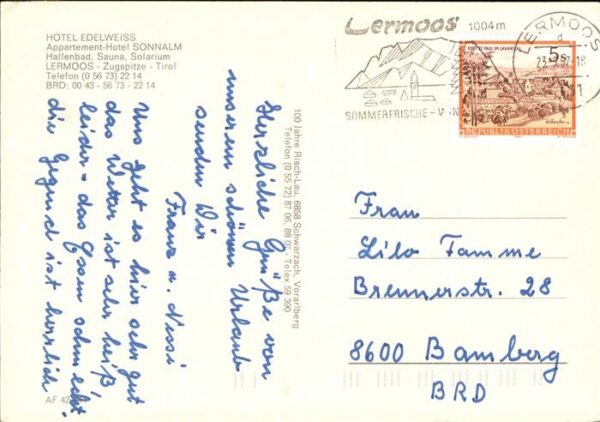 HOTEL EDELWEISS
Appartement-Hotel SONNALM
Hallenbad, Sauna, Solarium
LERMOOS - Zugspitze - Tirol
Telefon (0 56 73) 22 14
BRD: 00 43 - 56 73 - 22 14
Herzliche Grüße von
unserem schönen Urlaub
senden Dir
Franz u. Nissi
Uns geht es hier sehr gut
das Wetter ist sehr heiß,
leider - das Essen schmeckt
die Gegend ist herrlich
AF 42
100 Jahre Risch-Lau, 6858 Schwarzach, Vorarlberg
Telefon (0 55 72) 87 06, 88 07 - Telex 59 390
Lermoos 1004m
SOMMERFRISCHE -
LERMOOS
STIFT ST. PAUL IM LAVANTTAL
5s
REPUBLIK ÖSTERREICH
Frau
Lilo Tamme
Brennerstr. 28
8600 Bamberg
BRD